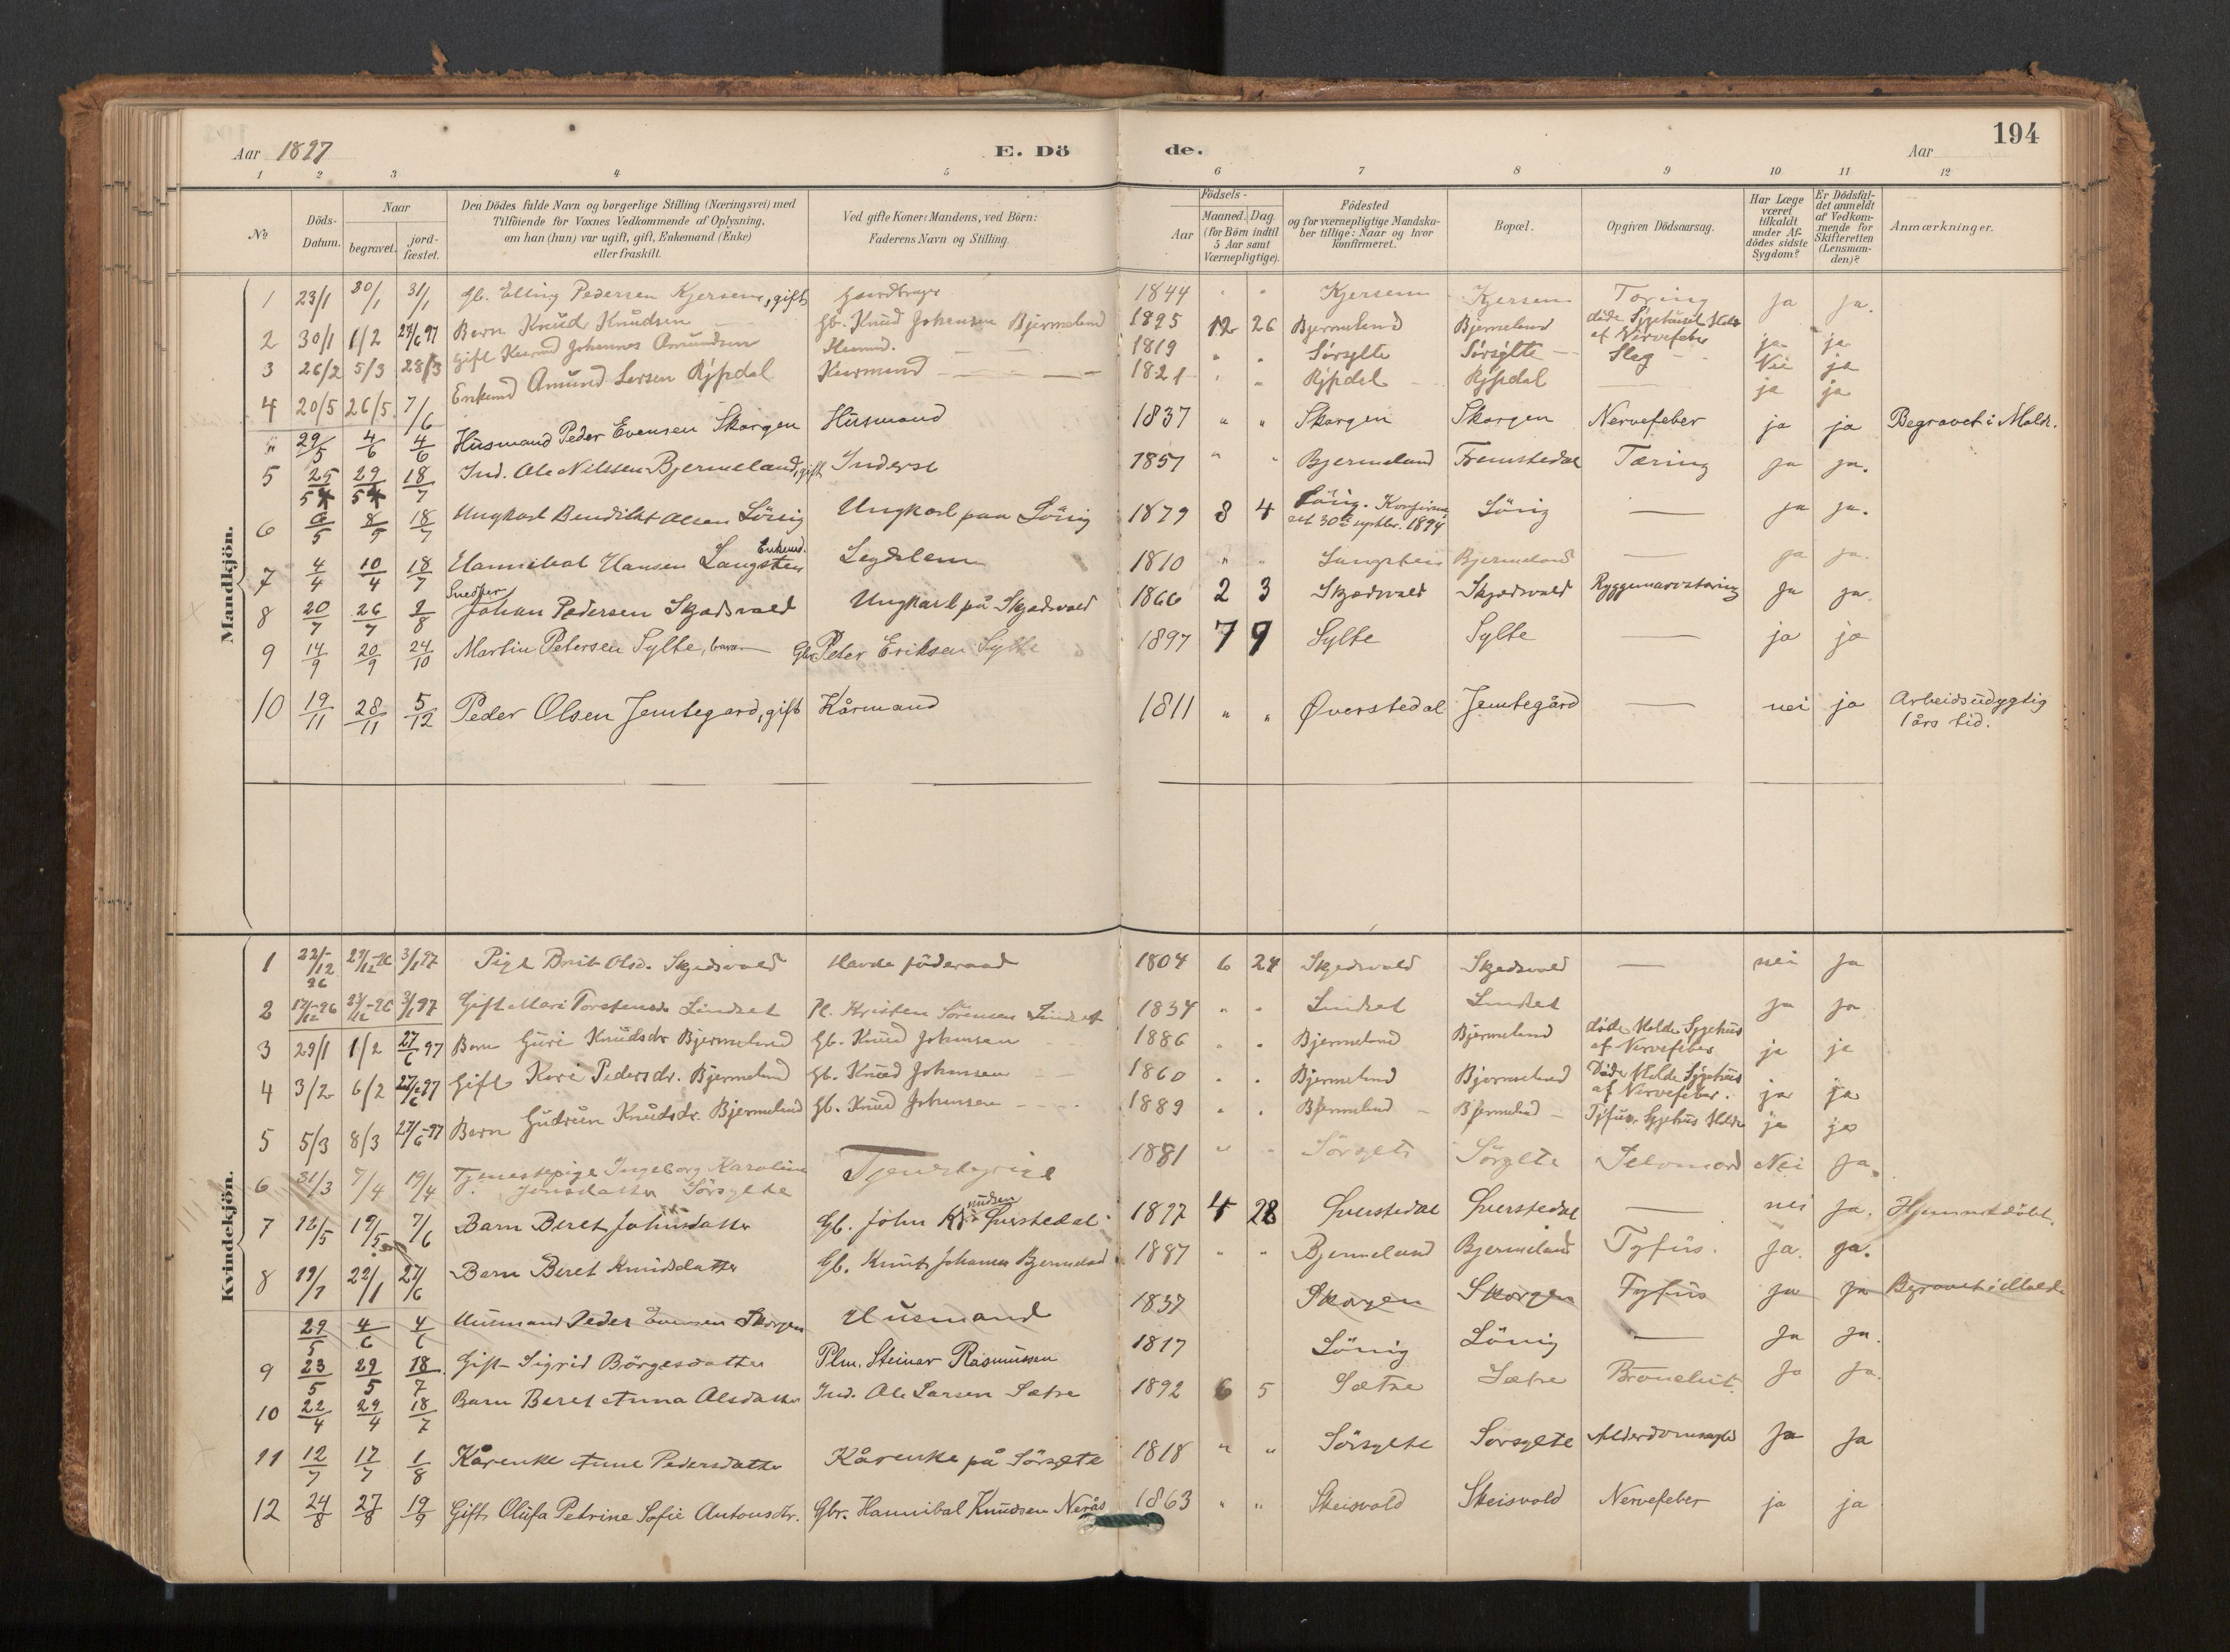 194
Aar 1897
E. Döde.
Aar
1 2 3 4 5 6 7 8 9 10 11 12
№
Döds-Datum.
Naar
begravet.
jord-fæstet.
Den Dödes fulde Navn og borgerlige Stilling (Næringsvei) med
Tilföiende for Voxnes Vedkommende af Oplysning,
om han (hun) var ugift, gift, Enkemand (Enke)
eller fraskilt.
Ved gifte Koner: Mandens, ved Börn:
Faderens Navn og Stilling.
Födsels-
Aar
Maaned. Dag.
(for Börn indtil
5 Aar samt
Værnepligtige).
Födested
og for værnepligtige Mandska-
ber tillige: Naar og hvor
konfirmeret.
Bopæl.
Opgiven Dödsaarsag.
Har Læge
været
tilkaldt
under Af-
dödes sidste
Sygdom?
Er Dödsfal-
det anmeldt
af Vedkom-
mende for
Skifteretten
(Lensman-
den)?
Anmærkninger.
Mandkjön.
1 23/1 30/1 31/1 Gb. Elling Pedersen Kjersem, gift Gaardbruger 1844 " " Kjersem Kjersem Tæring Ja Ja.
2 30/1 1/2 27/6 97 Barn Knud Knudsen Gb. Knud Johansen Bjermeland 1895 12 26 Bjermeland Bjermeland døde Sygehuset Molde af Nervefeber ja ja
3 26/2 5/3 28/3 Gift Kaarmand Johannes Amundsen 1819 " " Sørsylte Sørsylte Slag Nei ja
4 20/5 26/5 7/6 Enkemand Amund Larsen Rypdal Kaarmand 1821 " " Rypdal Rypdal — ja ja
" 29/5 4/6 4/6 Husmand Peder Evensen Skorgen Husmand 1837 " " Skorgen Skorgen Nervefeber ja ja Begravet i Molde.
5 25/5 29/5 18/7 Ind. Ole Nilssen Bjermeland, gift Inderst 1851 " " Bjermeland Fremstedal Tæring ja ja.
6 6/5 8/5 18/7 Ungkarl Bendikt Olsen Lönig Ungkarl paa Lönig 1879 8 4 Lönig. Lönig — ja ja.
7 4/4 10/4 18/7 Hannibal Hansen Langsten Enkemd. Legdslem 1810 " " Langsten Bjermeland — ja ja.
8 20/7 26/7 2/8 Snedker Johan Pedersen Skjedsvold Ungkarl på Skjedsvold 1866 2 3 Skjedsvold Skjedsvold Ryggemarvstæring Ja ja.
9 14/9 20/9 24/10 Martin Petersen Sylte, barn Gbr. Peter Eriksen Sylte 1897 7 9 Sylte Sylte — ja ja
10 19/11 28/11 5/12 Peder Olsen Jemtegard, gift Kårmand 1811 " " Øverstedal Jemtegård — nei ja Arbeidsudygtig
1 års tid.
Kvindekjön.
1 22/12 96 29/12-96 3/1 97 Pige Brit Olsd. Skjedsvold Havde föderaad 1804 6 24 Skjedsvold Skjedsvold — nei ja
2 17/12-96 23/12-96 3/1 97 Gift Mari Torstensd. Lindset Pl. Kristen Sörensen Lindset 1834 " " Lindset Lindset ja ja
3 29/1 1/2 27/6 97 Barn Guri Knudsdr. Bjermeland Gb. Knud Johansen 1886 " " Bjermeland Bjermeland døde Molde Sygehus af Nervefeber ja ja
4 3/2 6/2 27/6 97 Gift Kari Pedersdr. Bjermeland Gb. Knud Johansen 1860 " " Bjermeland Bjermeland Døde Molde Sygehus af Nervefeber. ja ja
5 5/3 8/3 27/6-97 Barn Gudrun Knudsdr. Bjermeland Gb. Knud Johansen 1889 " " Bjermeland Bjermeland Tyfus. Sygehus Molde ja ja
6 31/3 7/4 19/4 Tjenestepige Ingeborg Karoline Jonsdatter Sörsylte Tjenestepige 1881 " " Sörsylte Sörsylte Selvmord Nei Ja.
7 12/5 19/5 7/6 Barn Beret Johnsdatter Gb. John Knudsen Øverstedal 1897 4 28 Øverstedal Øverstedal — nei ja. Hjemmedöbt.
8 19/1 22/1 27/6 Barn Beret Knudsdatter Gb. Knut Johansen Bjermeland 1887 " " Bjermeland Bjermeland Tyfus. Ja. ja.
29/5 4/6 4/6 Husmand Peder Evensen Skorgen Husmand 1837 Skorgen Skorgen Tyfus ja ja Begravet i Molde
9 23/5 29/5 18/7 Gift Sigrid Börgesdatter Plm. Steinar Rasmussen 1817 Lönig Lönig — Ja ja.
10 22/4 29/4 18/7 Barn Beret Anna Olsdatter Ind. Ole Larsen Sætre 1892 6 5 Sætre Sætre Bronchit. Ja ja.
11 12/7 17/7 1/8 Kårenke Anne Pedersdatter Kårenke på Sörsylte 1818 " " Sörsylte Sorsylte Alderdomssvaghed Ja Ja
12 24/8 27/8 19/9 Gift Olufa Petrine Sofie Antonsdtr. Gbr. Hannibal Knudsen Nerås 1863 " " Skeisvold Skeisvold Nervefeber ja ja